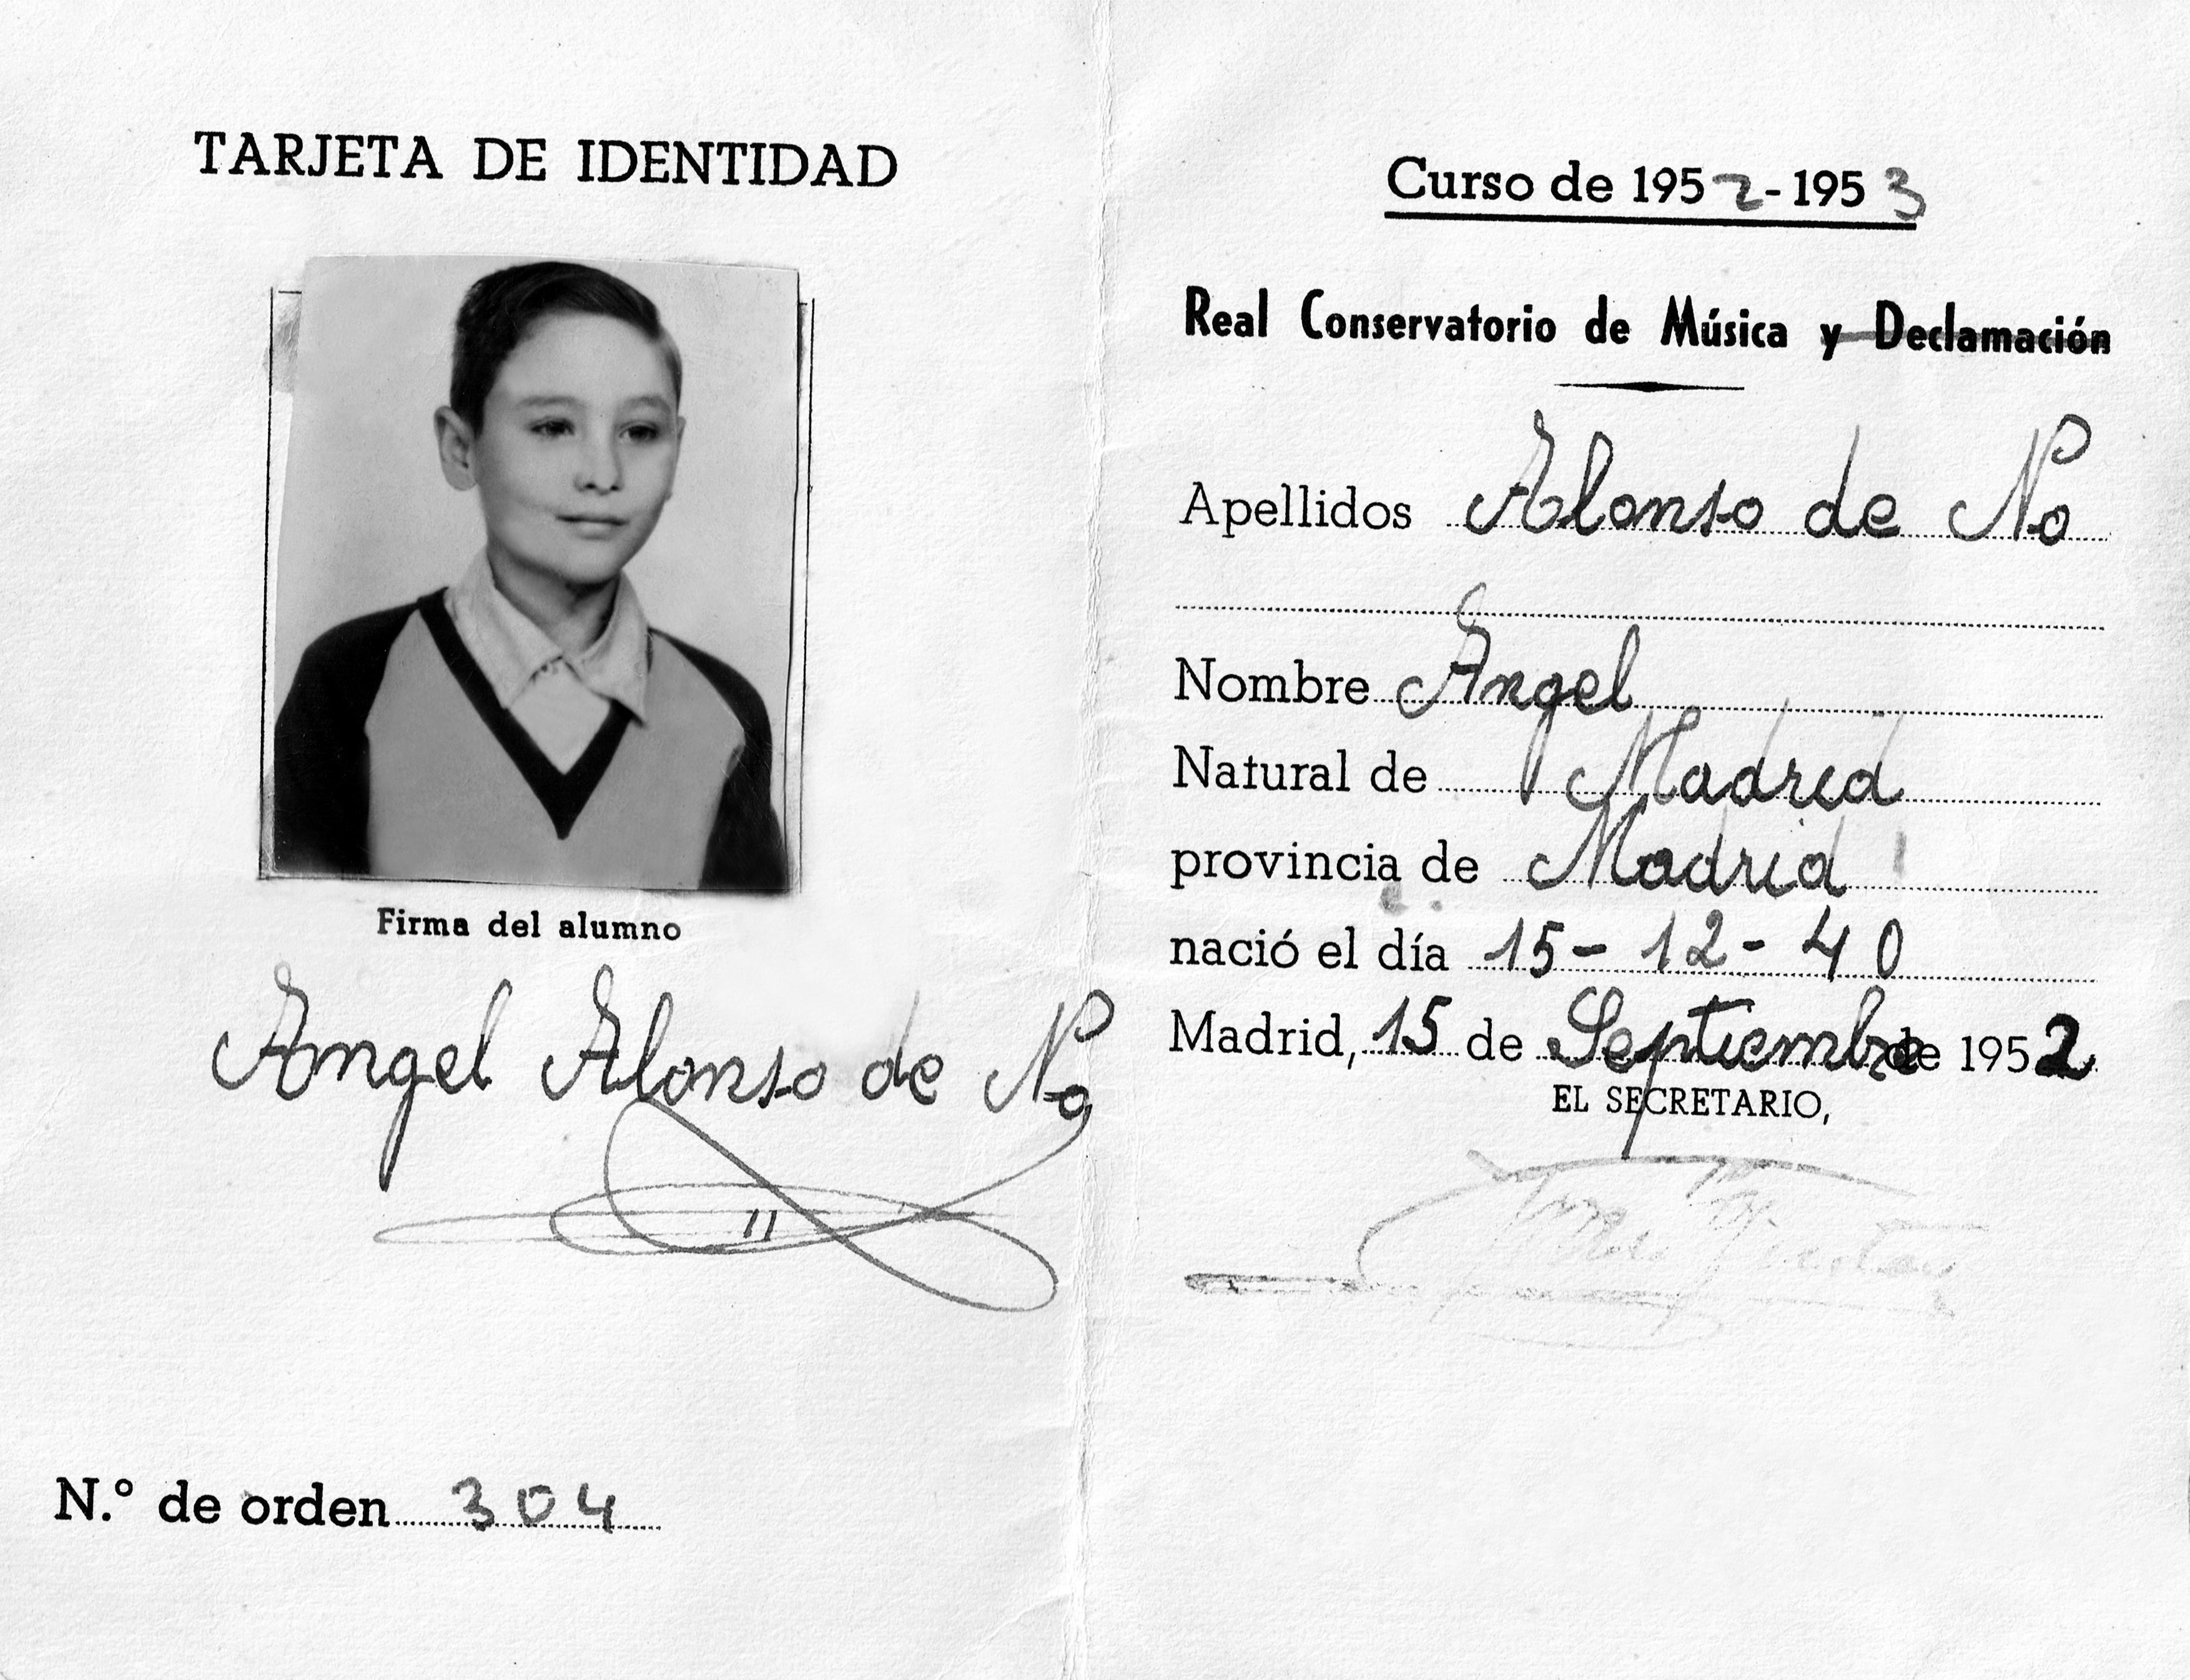 TARJETA DE IDENTIDAD
Firma del alumno
Angel Alonso de No
N.º de orden 304
Curso de 1952-1953
Real Conservatorio de Música y Declamación
Apellidos Alonso de No
Nombre Angel
Natural de Madrid
provincia de Madrid
nació el día 15-12-40
Madrid, 15 de Septiembre de 1952
EL SECRETARIO,